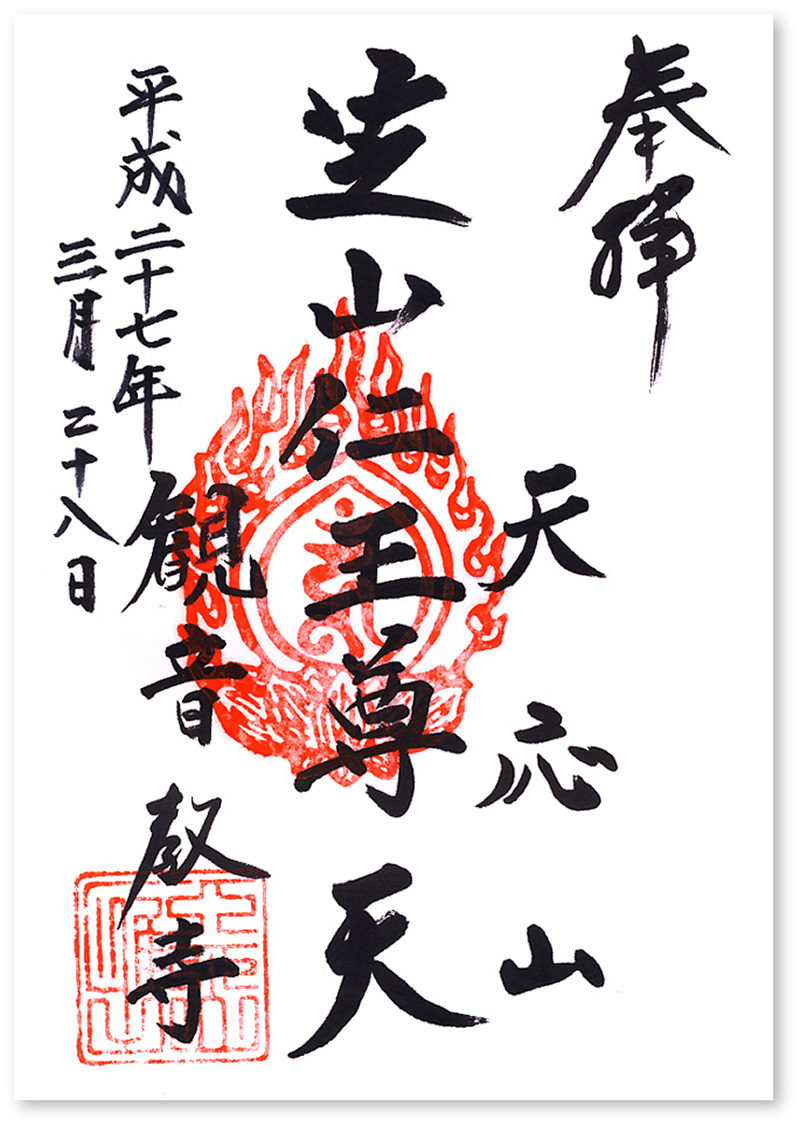 奉拝
天応山
芝山仁王尊天
観音教寺
平成二十七年
三月二十八日